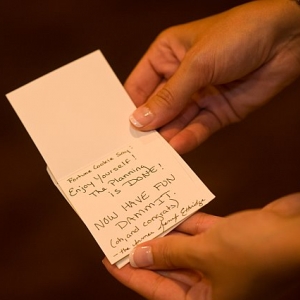 Fortune Cookie Say:
Enjoy Yourself!
The Planning
is DONE!
NOW HAVE FUN
DAMMIT.
(oh, and congrats)
- the